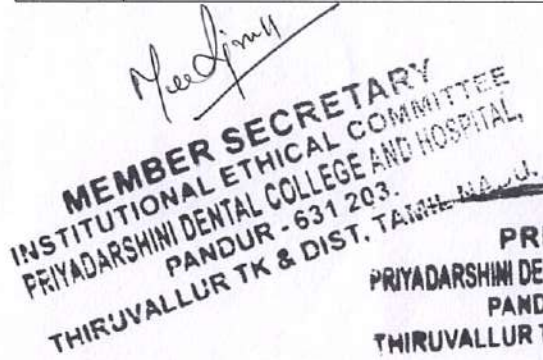 MEMBER SECRETARY
INSTITUTIONAL ETHICAL COMMITTEE
PRIYADARSHINI DENTAL COLLEGE AND HOSPITAL,
PANDUR - 631 203.
THIRUVALLUR TK & DIST. TAMIL NADU.
PRI
PRIYADARSHINI DE
PAND
THIRUVALLUR T